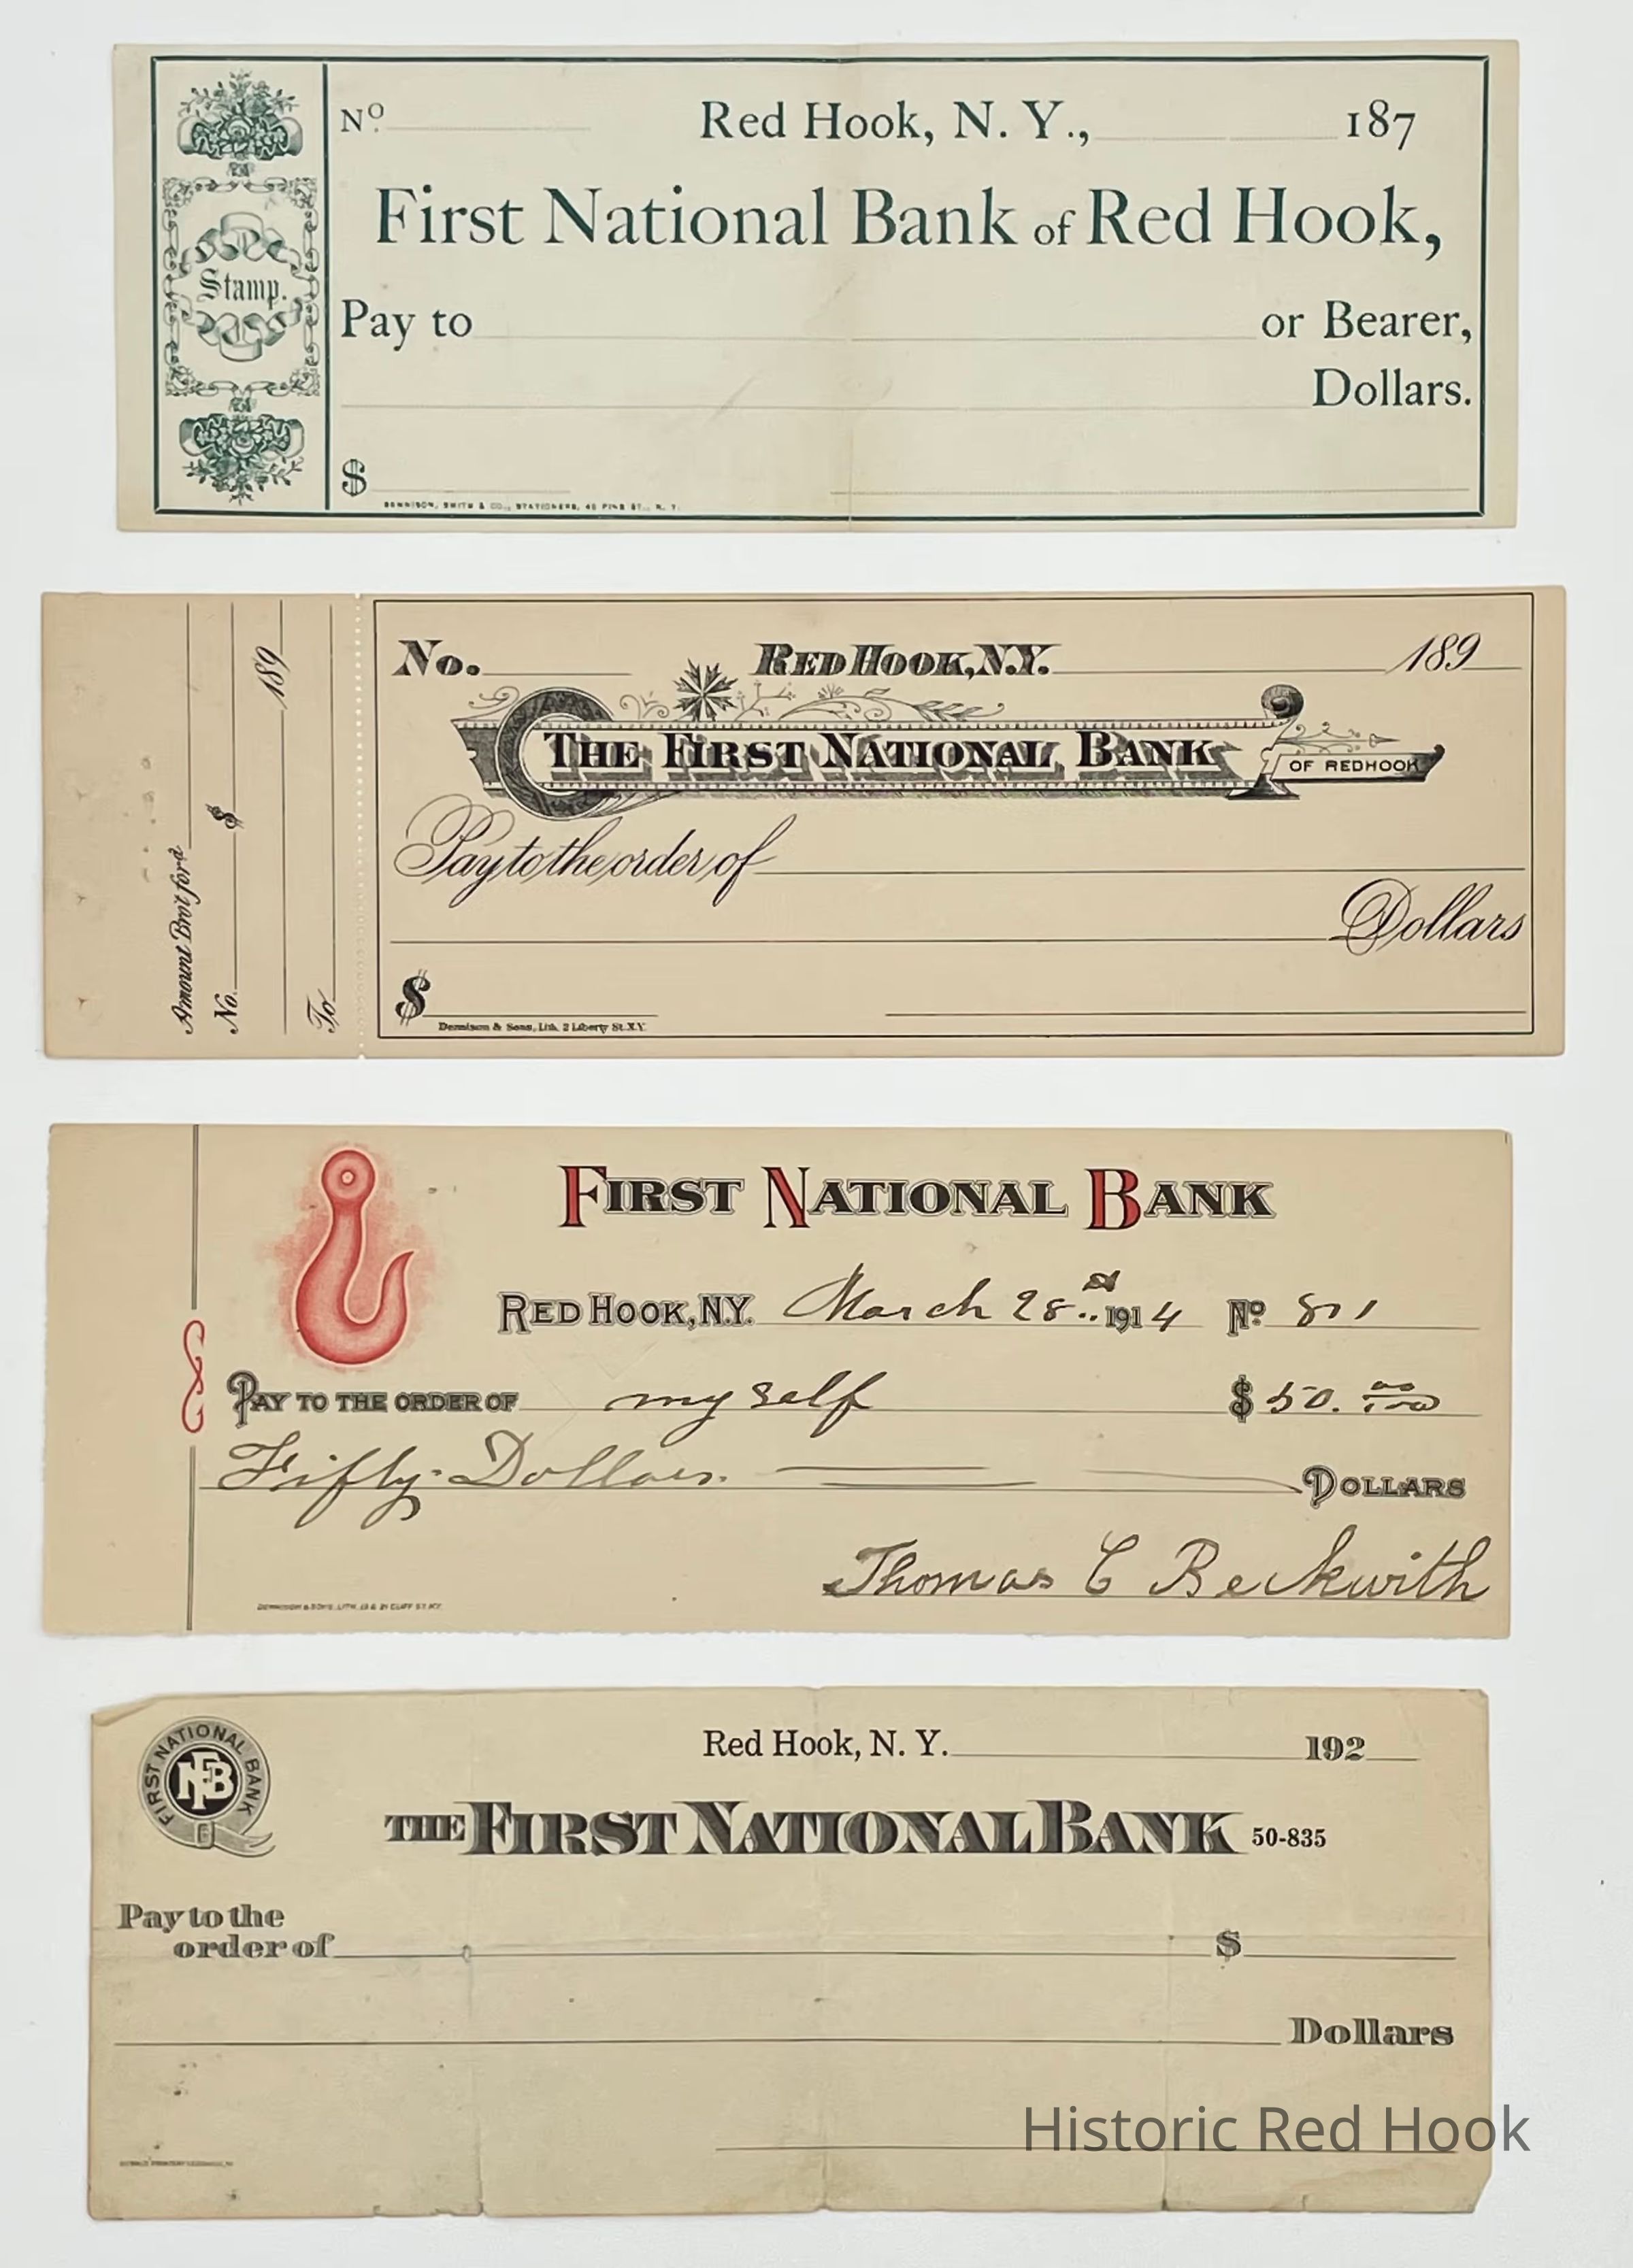 Nº Red Hook, N. Y., 187
First National Bank of Red Hook,
Stamp.
Pay to or Bearer,
Dollars.
$
DENNISON, SMITH & CO., STATIONERS, 45 PINE ST., N. Y.
Amount Brot ford
No. $
189
To
No. RED HOOK, N.Y. 189
THE FIRST NATIONAL BANK
OF REDHOOK
Pay to the order of
Dollars
$
Dennison & Sons, Lith. 2 Liberty St. N.Y.
FIRST NATIONAL BANK
RED HOOK, N.Y. March 28 1914 Nº 801
PAY TO THE ORDER OF my self $ 50. 00/100
Fifty Dollars. DOLLARS
Thomas C Beckwith
DENNISON & SONS, LITH. CLIFF ST. N.Y.
FIRST NATIONAL BANK
FNB
Red Hook, N. Y. 192
THE FIRST NATIONAL BANK 50-835
Pay to the
order of $
Dollars
Historic Red Hook